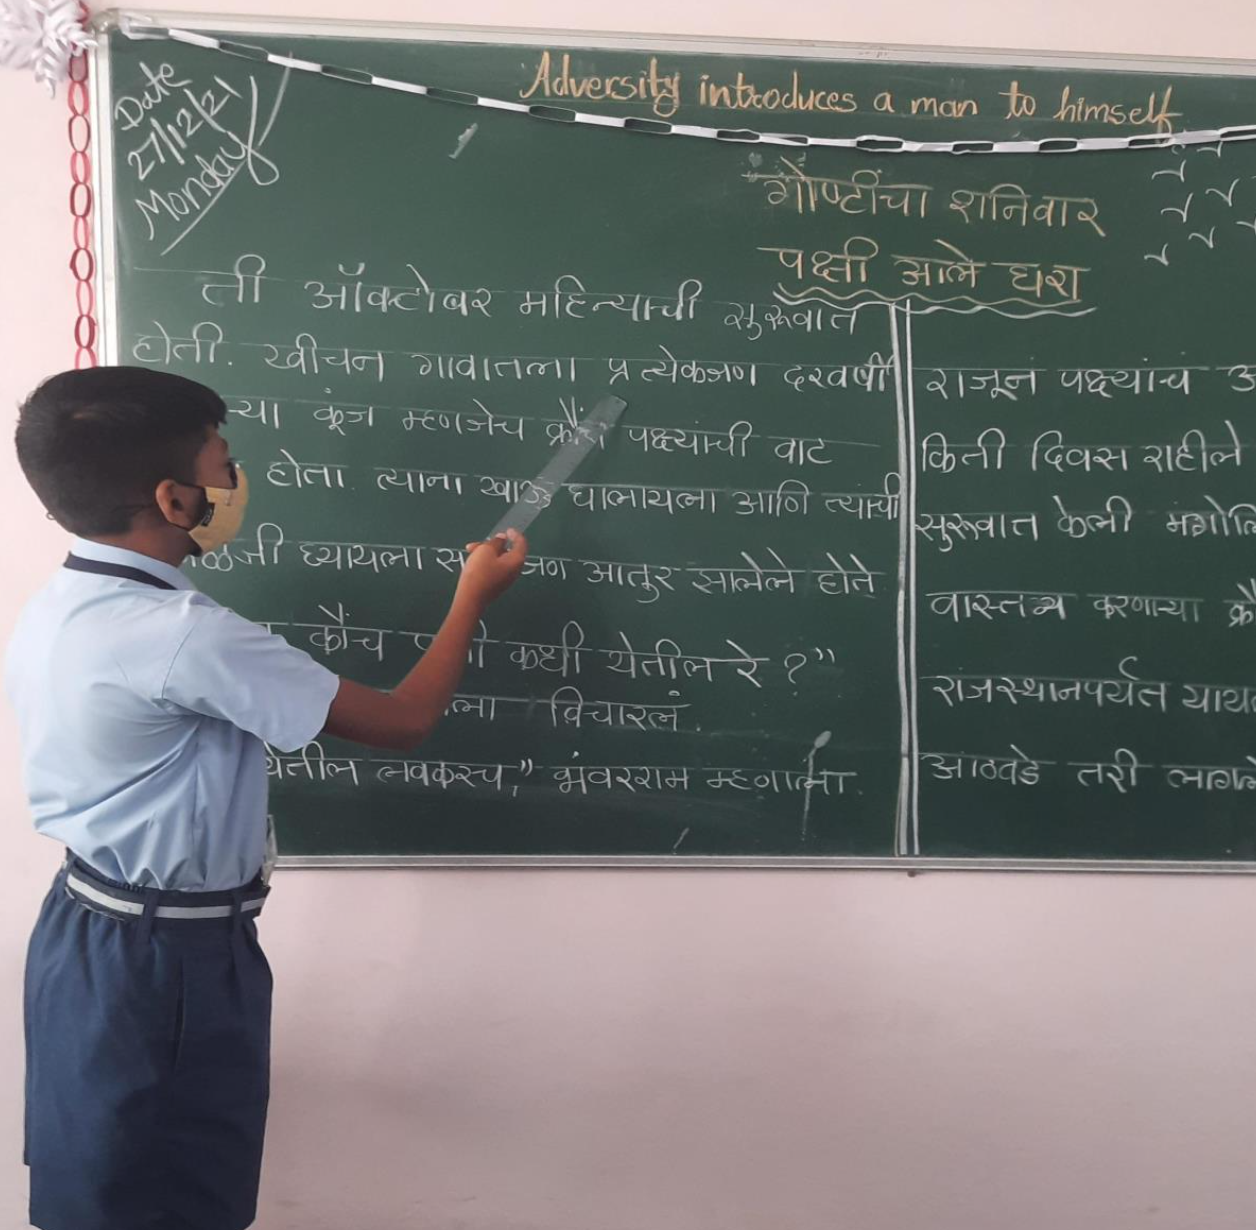 Date
27/12/21
Monday
Adversity introduces a man to himself
गोष्टींचा शनिवार
पक्षी आले घरा
ती ऑक्टोबर महिन्याची सुरूवात
होती. खीचन गावातला प्रत्येकजण दरवर्षी
च्या कूंज म्हणजेच पक्ष्यांची वाट
होता. त्याना खाऊ घालायला आणि त्यांची
घ्यायला आतुर सालेले होते
कौंच कधी येतील रे ?”
विचारलं.
येतील लवकरच,” भंवरराम म्हणाला.
राजून पक्ष्यांच
किती दिवस राहीले
सुरूवात केली
वास्तव्य करणाऱ्या
राजस्थानपर्यंत
आठवडे तरी